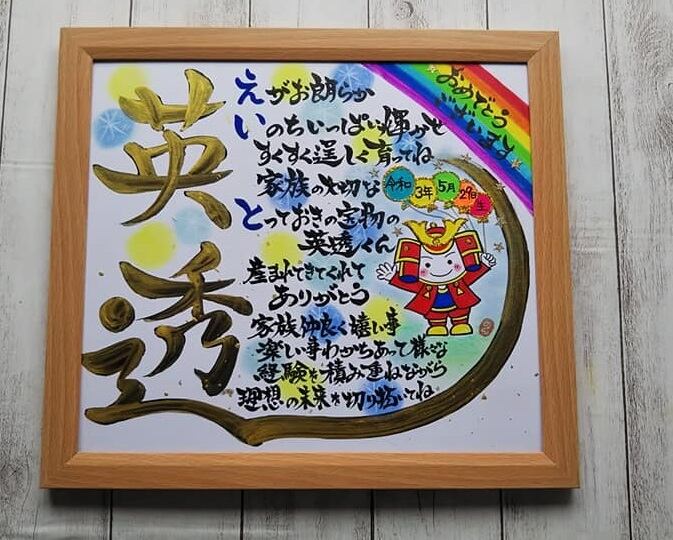 英透
えがお朗らか
いのちいっぱい輝かせ
すくすく逞しく育ってね
家族の大切な
とっておきの宝物の
英透くん
産まれてきてくれて
ありがとう
家族仲良く嬉い事
楽しい事わかちあって様々な
経験を積み重ねながら
理想の未来を切り拓いてね
おめでとう
ございます
令和3年5月29日生